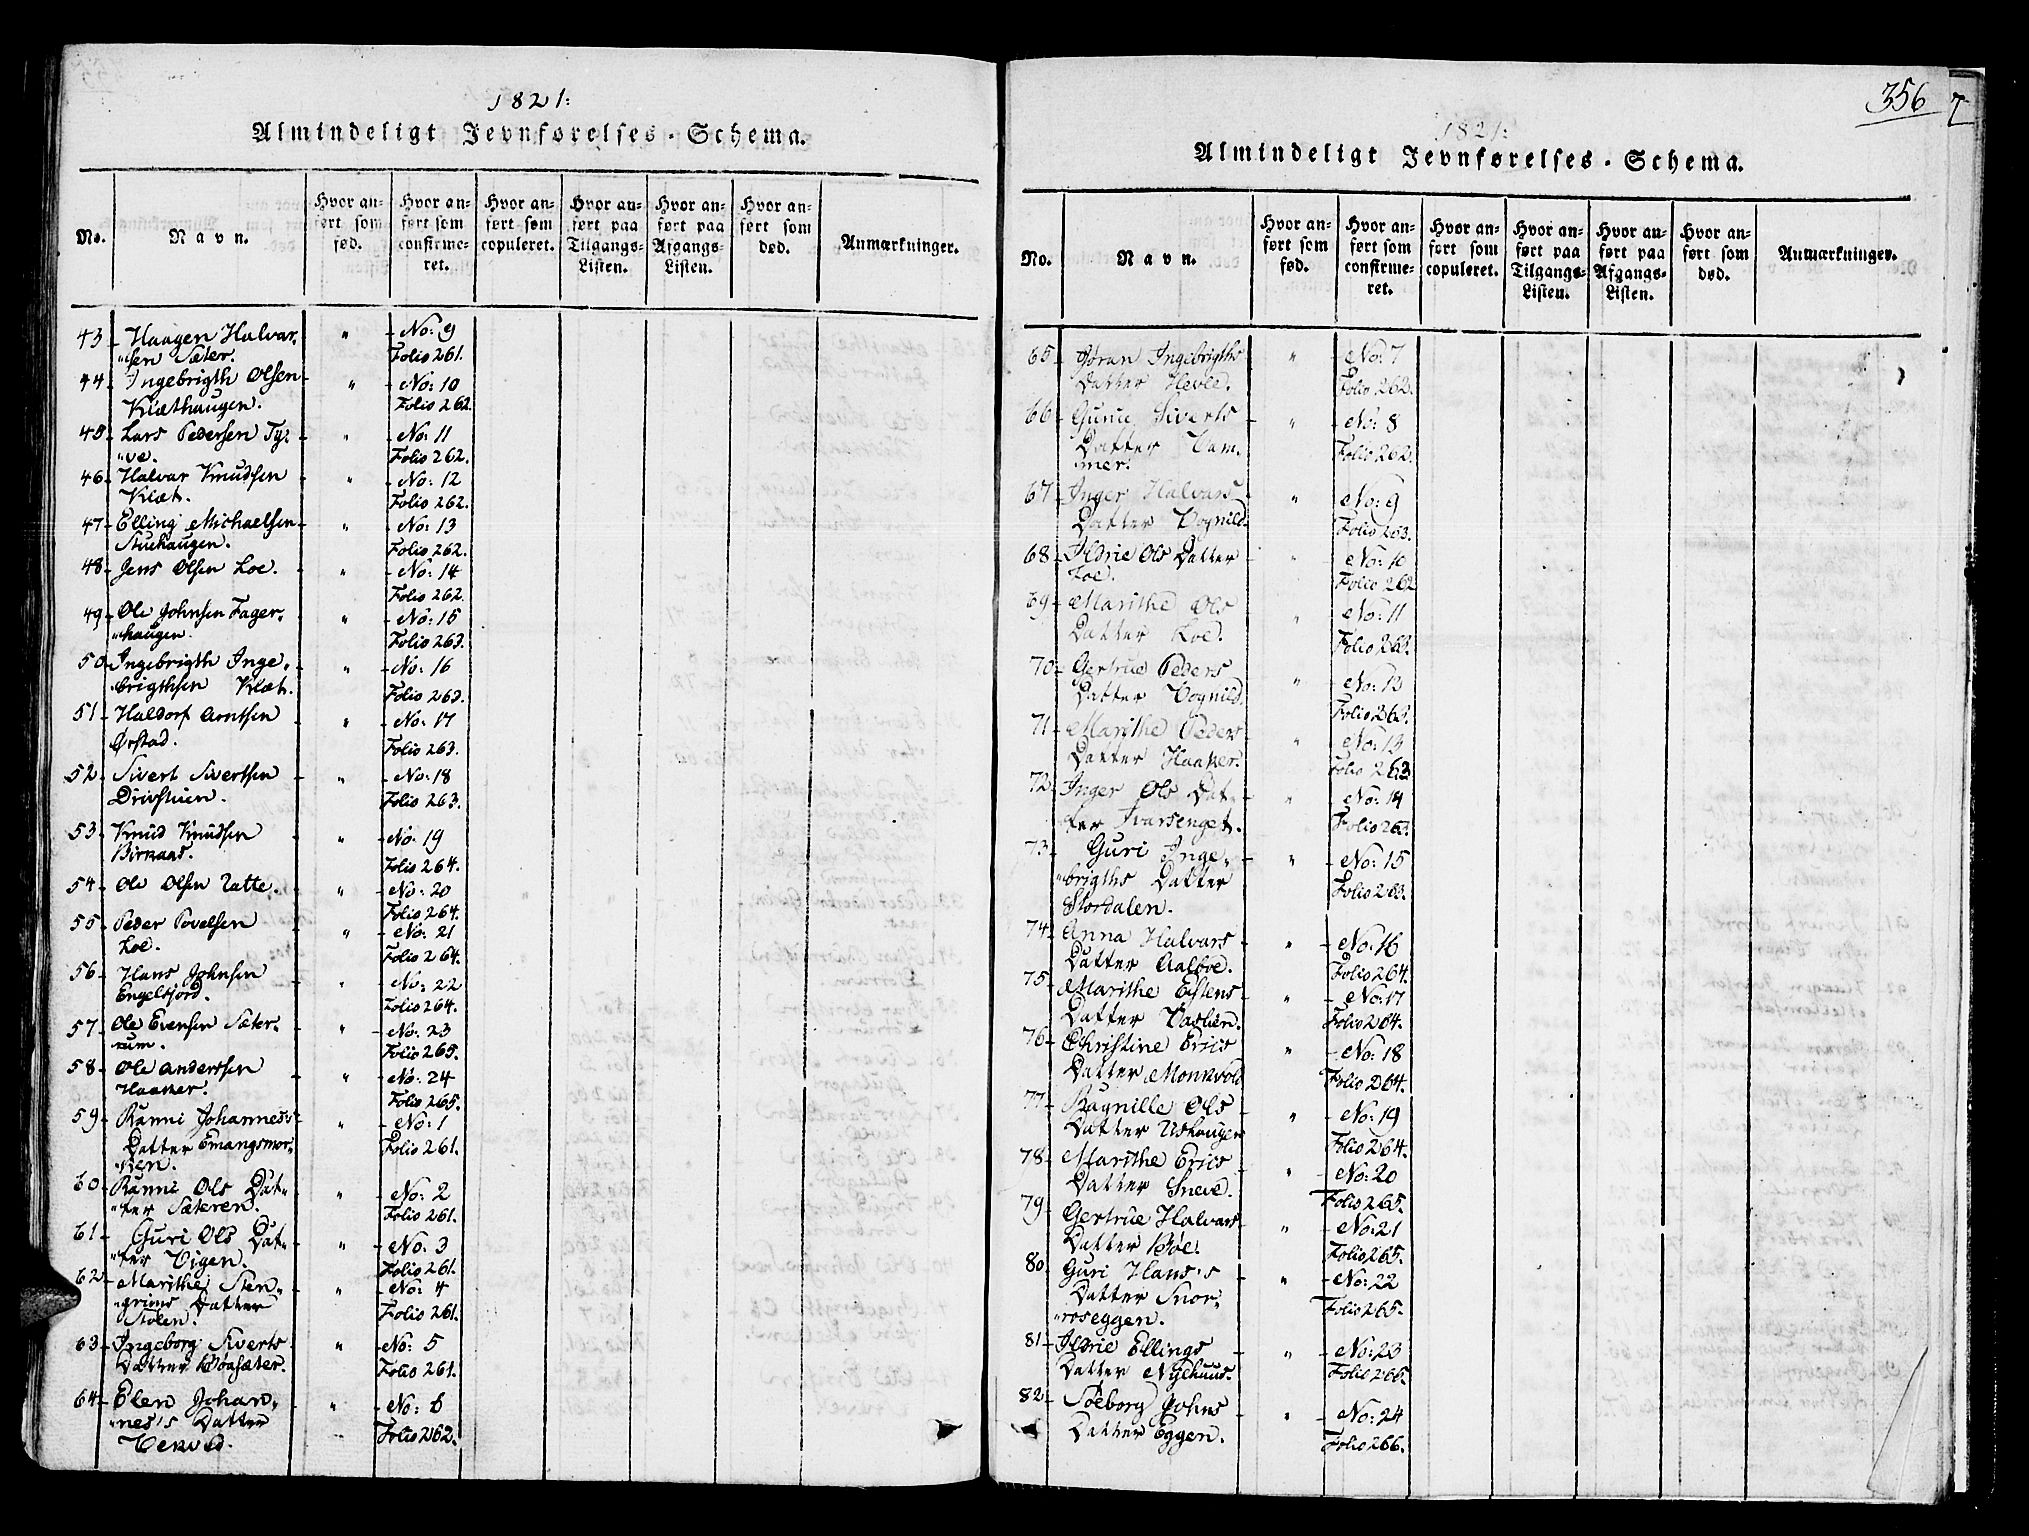 1821:
Almindeligt Jevnførelses-Schema.
No.
Navn.
Hvor an-
ført som
fød.
Hvor an-
ført som
confirme-
ret.
Hvor an-
ført som
copuleret.
Hvor an-
ført paa
Tilgangs-
Listen.
Hvor an-
ført paa
Afgangs-
Listen.
Hvor an-
ført som
død.
Anmærkninger.
43 - Haagen Halvar- " - No: 9
"sen Sæter. Folio 261.
44 - Ingebrigth Olsen - " - No: 10
Klæthaugen. Folio 262.
45 - Lars Pedersen Ty- " - No: 11
"ve. Folio 262.
46 - Halvar Knudsen - " - No: 12
Klæt. Folio 262.
47 - Elling Michaelsen - " - No: 13
Stuehaugen. Folio 262.
48 - Jens Olsen Loe. - " - No: 14
Folio 262.
49 - Ole Johnsen Fager- " - No: 15
"haugen. Folio 263.
50 - Ingebrigth Inge- " - No: 16
"brigthsen Klæt. Folio 263.
51 - Haldorf Arntsen - " - No: 17
Ørstad. Folio 263.
52 - Sivert Sivertsen - " - No: 18
Drivstuen. Folio 263.
53 - Knud Knudsen - " - No: 19
Birkaas. Folio 264.
54 - Ole Olsen Ratte. - " - No: 20
Folio 264.
55 - Peder Povelsen " - No: 21
Loe. Folio 264.
56 - Hans Johnsen " - No: 22
Engelsjord. Folio 264.
57 - Ole Evensen Sæter- " - No: 23
"rum. Folio 265.
58 - Ole Andersen - " - No: 24
Haaker. Folio 265.
59 - Ranni Johannes's - " - No: 1
Datter Emangsmor- Folio 261.
"ken.
60 - Ranni Ols Dat- " - No: 2
"ter Sæteren. Folio 261.
61 - Guri Ols Dat- " - No: 3
"ter Vigen. Folio 261.
62 - Marithe Sten- " - No: 4
"grims Datter Folio 261.
Stolen.
63 - Ingeborg Siverts - " - No: 5
Datter Bøasæter. Folio 261.
64 - Elen Johan- " - No: 6
"nes's Datter Folio 262.
356
7
1821:
Almindeligt Jevnførelses-Schema.
No.
Navn.
Hvor an-
ført som
fød.
Hvor an-
ført som
confirme-
ret.
Hvor an-
ført som
copuleret.
Hvor an-
ført paa
Tilgangs-
Listen.
Hvor an-
ført paa
Afgangs-
Listen.
Hvor an-
ført som
død.
Anmærkninger.
65 - Jøran Ingebrigths " - No: 7
Datter Hevle. Folio 262.
66 - Gunu Siverts - " - No: 8
Datter Vam- Folio 262.
"mer.
67 - Inger Halvars - " - No: 9
Datter Vognild. Folio 263.
68 - Ildrie Ols Datter " - No: 10
Loe. Folio 262
69 - Marithe Ols " - No: 11
Datter Loe. Folio 263.
70 - Gertrue Peders " - No: 12
Datter Vognild. Folio 263.
71 - Marithe Peders - " - No: 13
Datter Haaker. Folio 263
72 - Inger Ols Dat- " - No: 14
"ter Ivarsenget. Folio 263.
73 - Guri Inge- " - No: 15
"brigths Datter Folio 263.
Stordalen.
74 - Anna Halvars - " - No: 16
Datter Aalboe. Folio 264.
75 - Marithe Estens - " - No: 17
Datter Vaslien. Folio 264.
76 - Christine Erics " - No: 18
Datter Monkvold Folio 264.
77 - Ragnille Ols - " - No: 19
Datter Ushaugen Folio 264.
78 - Marithe Erics - " - No: 20
Datter Sneve. Folio 265.
79 - Gertrue Halvars - " - No: 21
Datter Bøe. Folio 265.
80 - Guri Hans's - " - No: 22
Datter Snor- Folio 265.
"roseggen.
81 - Ildrie Ellings - " - No: 23
Datter Nyehuus. Folio 266.
82 - Søeborg Johns - " - No: 24
Datter Eggen. Folio 266.